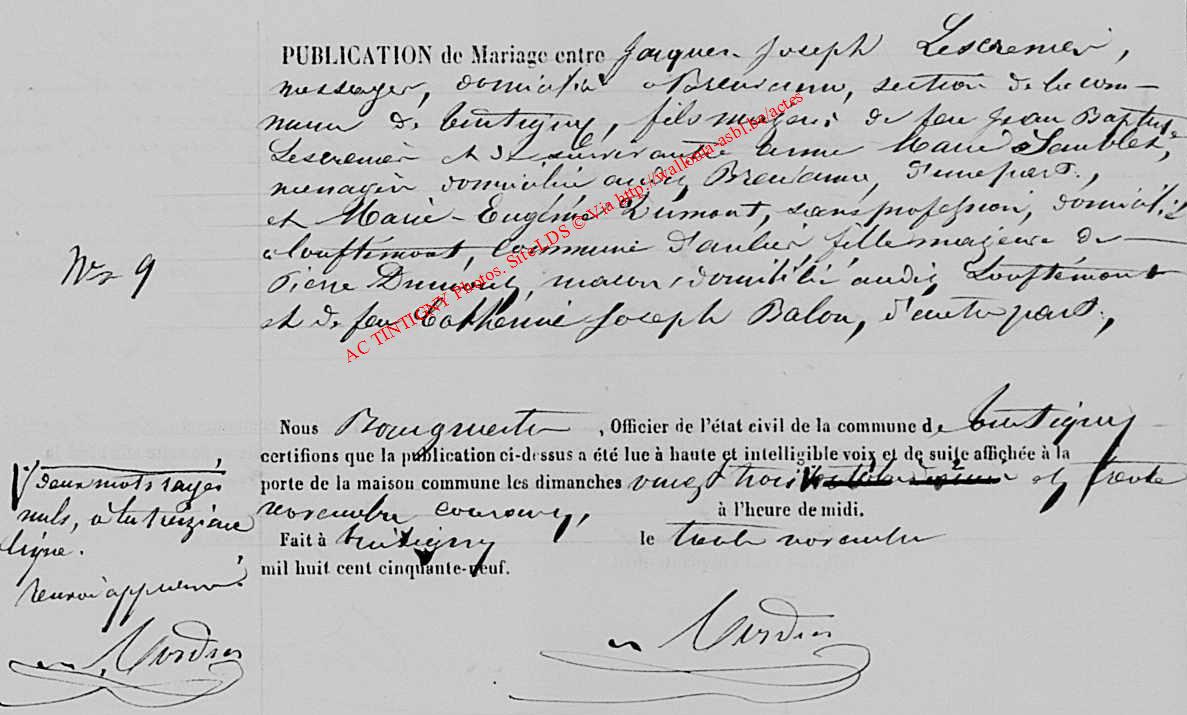 PUBLICATION de Mariage entre Jacques Joseph Lescrenier,
messager, domicilié à Breuvanne, section de la com-
mune de Tintigny, fils majeur de feu Jean Baptiste
Lescrenier et de survivante Anne Marie
menagère domiciliée audit Breuvanne, d'une part,
et Marie-Eugénie Dumont, sans profession, domicilié
à Louftémont, commune d'anlier, fille majeure de
Pierre Dumont, maçon, domicilié audit Louftémont
et de feu Catherine Joseph Balon, d'autre part,
Nº 9
Nous Bourgmestre, Officier de l'état civil de la commune de Tintigny
certifions que la publication ci-dessus a été lue à haute et intelligible voix et de suite affichée à la
porte de la maison commune les dimanches vingt trois et trente
novembre courant, à l'heure de midi.
Fait à Tintigny le trente novembre
mil huit cent cinquante-neuf.
deux mots rayés
nuls, à la treizième
ligne.
renvoi approuvé
AC TINTIGNY Photos. Site LDS © Via http://wallonia-asbl.be/actes